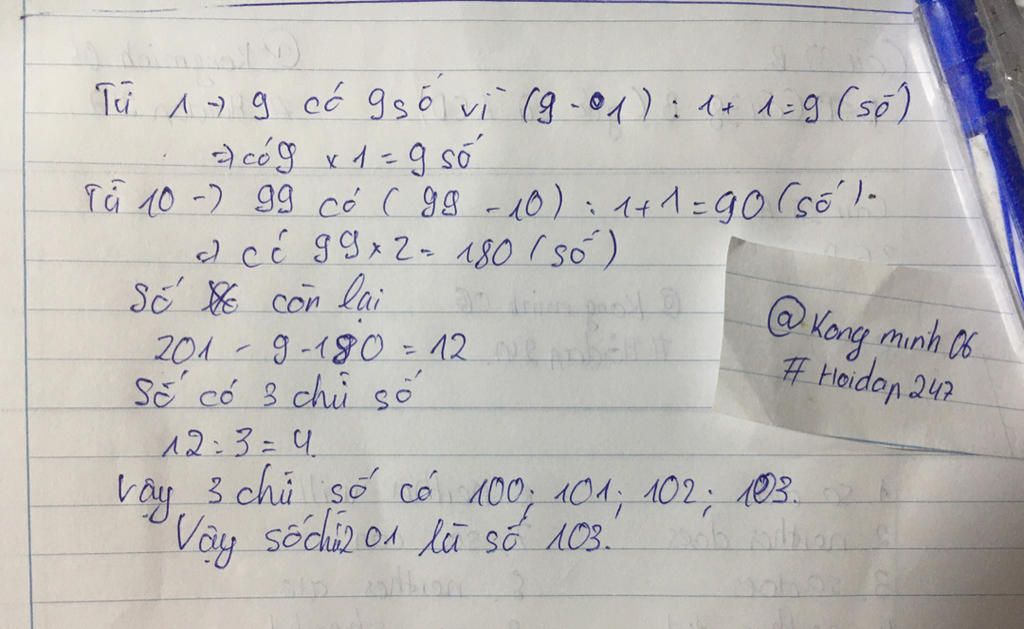 Từ 1 → 9 có 9 số vì (9 - 1) : 1 + 1 = 9 (số)
⇒ có 9 x 1 = 9 số
Từ 10 → 99 có (99 - 10) : 1 + 1 = 90 (số).
⇒ có 99 x 2 = 180 (số)
Số còn lại
201 - 9 - 180 = 12
Số có 3 chữ số
12 : 3 = 4.
Vậy 3 chữ số có 100; 101; 102; 103.
Vậy số chữ 201 là số 103.
@Kong minh 06
# Hoidap 247